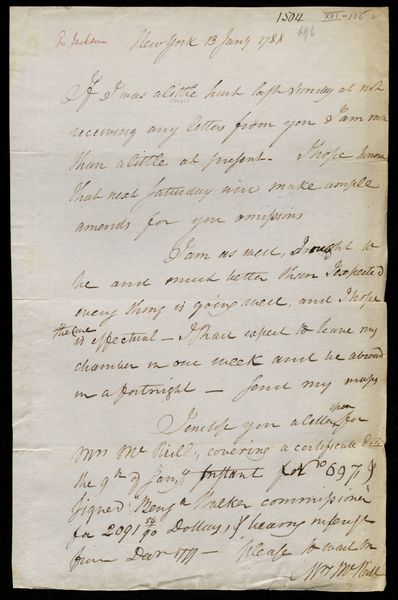 1504
XXI-105
696
Dr Jackson
New York 13 Jany 1788
If I was a little hurt last Sunday at not
receiving any letters from you I am more
than a little at present - I hope
that next Saturday will make ample
amends for your omissions
I am as well, I ought to
be and much better than I expected
every thing is going well, and I hope
the cure
is effectual - I shall expect to leave my
chamber in one week and be abroad
in a fortnight - send my
I enclose you a letter open for
Mrs McNeill, covering a certificate
the 9th of Jany Instant for No 697 &
signed Benj Walker commissioner
for 2091 54/90 Dollars, & bearing interest
from Decr 1779 - please to wait on
Mrs McNeill